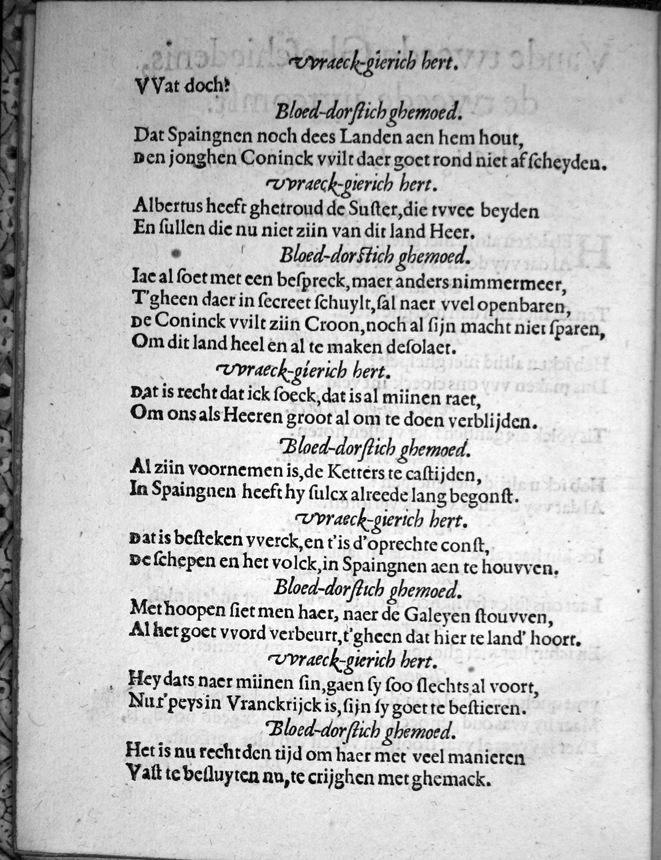 Vvraeck-gierich hert.
VVat doch?
Bloed-dorſtich ghemoed.
Dat Spaingnen noch dees Landen aen hem hout,
Den jonghen Coninck vvilt daer goet rond niet afſcheyden.
Vvraeck-gierich hert.
Albertus heeft ghetroud de Suſter,die tvvee beyden
En ſullen die nu niet ziin van dit land Heer.
Bloed-dorſtich ghemoed.
Iae al ſoet met een beſpreck,maer anders nimmermeer,
T'gheen daer in ſecreet ſchuylt,ſal naer vvel openbaren,
De Coninck vvilt ziin Croon,noch al ſijn macht niet ſparen,
Om dit land heel en al te maken deſolaet.
Vvraeck-gierich hert.
Dat is recht dat ick ſoeck,dat is al miinen raet,
Om ons als Heeren groot al om te doen verblijden.
Bloed-dorſtich ghemoed.
Al ziin voornemen is,de Ketters te caſtijden,
In Spaingnen heeft hy ſulcx alreede lang begonſt.
Vvraeck-gierich hert.
Dat is beſteken vverck,en t'is d'oprechte conſt,
De ſchepen en het volck,in Spaingnen aen te houvven.
Bloed-dorſtich ghemoed.
Met hoopen ſiet men haer, naer de Galeyen ſtouvven,
Al het goet vvord verbeurt,t'gheen dat hier te land' hoort.
Vvraeck-gierich hert.
Hey dats naer miinen ſin,gaen ſy ſoo ſlechts al voort,
Nu t'peys in Vranckrijck is,ſijn ſy goet te beſtieren.
Bloed-dorſtich ghemoed.
Het is nu recht den tijd om haer met veel manieren
Vaſt te beſluyten nu,te crijghen met ghemack.